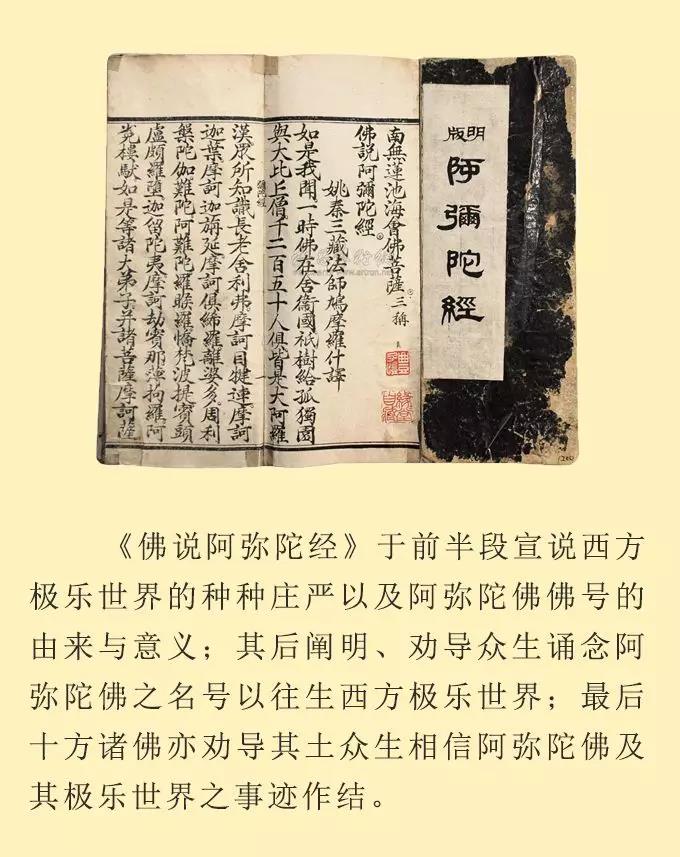 明版
阿彌陀經
南無蓮池海會佛菩薩三稱
佛說阿彌陀經
姚秦三藏法師鳩摩羅什譯
如是我聞一時佛在舍衛國祇樹給孤獨園
與大比丘僧千二百五十人俱皆是大阿羅
彌陀經
漢眾所知識長老舍利弗摩訶目犍連摩訶
迦葉摩訶迦旃延摩訶俱絺羅離婆多周利
槃陀伽難陀阿難陀羅睺羅憍梵波提賓頭
盧頗羅墮迦留陀夷摩訶劫賓那薄拘羅阿
㝹樓馱如是等諸大弟子并諸菩薩摩訶薩
《佛说阿弥陀经》于前半段宣说西方
极乐世界的种种庄严以及阿弥陀佛佛号的
由来与意义；其后阐明、劝导众生诵念阿
弥陀佛之名号以往生西方极乐世界；最后
十方诸佛亦劝导其土众生相信阿弥陀佛及
其极乐世界之事迹作结。